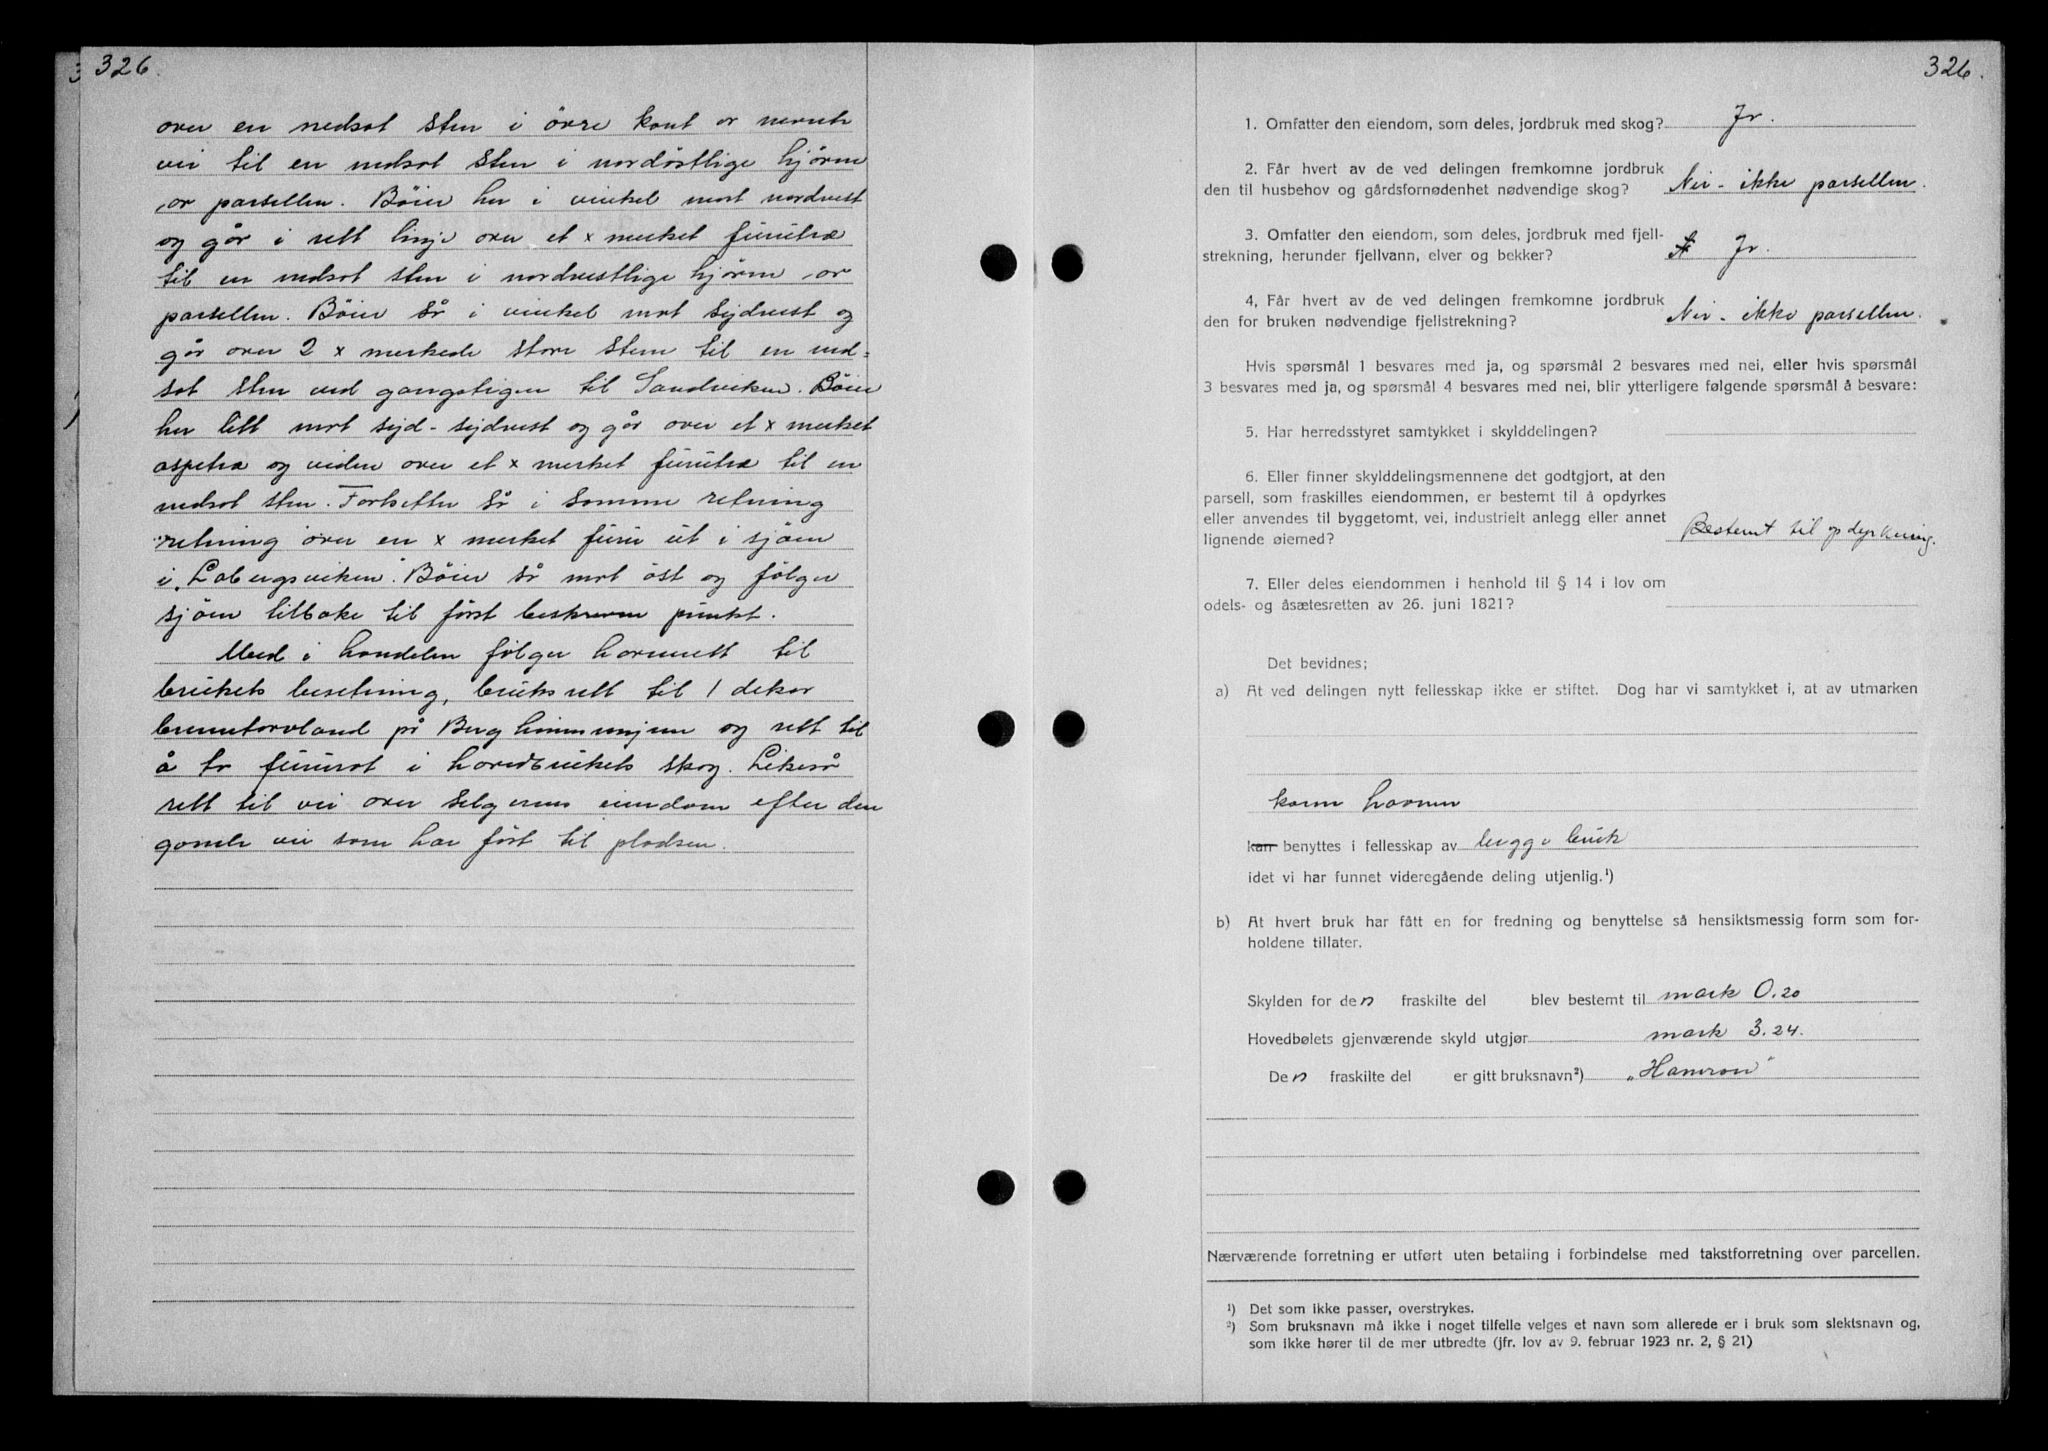 326.
over en nedsat sten i övre kant av nevnte
vei til en nedsat sten i nordöstlige hjörne
av parsellen. Böier her i vinkel mot nordvest
og går i rett linje over et x merket furutræ
til en nedsat sten i nordvestlige hjörne av
parsellen. Böier så i vinkel mot sydvest og
går over 2 x merkede store stene til en ned=
sat sten ved gangstigen til Sandviken. Böier
her litt mot syd-sydvest og går over et x merket
aspetræ og videre over et x merket furutræ til en
nedsat sten. Fortsetter så i samme retning
retning over en x merket furu ut i sjöen
i "Labergsviken". Böier så mot öst og fölger
sjöen tilbake til först beskrevne punkt.
Med i handelen fölger havnett til
brukets besetning, bruksrett til 1 dekar
brenntorvland på Berghimmyrene og rett til
å ta furuved i hovedbrukets skog. Likeså
rett til vei over selgerens eiendom efter den
gamle vei som har fört til pladsen.
326.
1. Omfatter den eiendom, som deles, jordbruk med skog? Ja.
2. Får hvert av de ved delingen fremkomne jordbruk
den til husbehov og gårdsfornødenhet nødvendige skog? Nei - ikke parsellen.
3. Omfatter den eiendom, som deles, jordbruk med fjell-
strekning, herunder fjellvann, elver og bekker? Ja.
4, Får hvert av de ved delingen fremkomne jordbruk
den for bruken nødvendige fjellstrekning? Nei - ikke parsellen.
Hvis spørsmål 1 besvares med ja, og spørsmål 2 besvares med nei, eller hvis spørsmål
3 besvares med ja, og spørsmål 4 besvares med nei, blir ytterligere følgende spørsmål å besvare:
5. Har herredsstyret samtykket i skylddelingen?
6. Eller finner skylddelingsmennene det godtgjort, at den
parsell, som fraskilles eiendommen, er bestemt til å opdyrkes
eller anvendes til byggetomt, vei, industrielt anlegg eller annet
lignende øiemed? Bestemt til opdyrkning.
7. Eller deles eiendommen i henhold til § 14 i lov om
odels- og åsætesretten av 26. juni 1821?
Det bevidnes;
a) At ved delingen nytt fellesskap ikke er stiftet. Dog har vi samtykket i, at av utmarken
kann havnen
kan benyttes i fellesskap av begge bruk
idet vi har funnet videregående deling utjenlig.¹)
b) At hvert bruk har fått en for fredning og benyttelse så hensiktsmessig form som for-
holdene tillater.
Skylden for den fraskilte del blev bestemt til mark 0.20
Hovedbølets gjenværende skyld utgjør mark 3.24.
Den fraskilte del er gitt bruksnavn²) „Hamran"
Nærværende forretning er utført uten betaling i forbindelse med takstforretning over parcellen.
¹) Det som ikke passer, overstrykes.
²) Som bruksnavn må ikke i noget tilfelle velges et navn som allerede er i bruk som slektsnavn og,
som ikke hører til de mer utbredte (jfr. lov av 9. februar 1923 nr. 2, § 21)